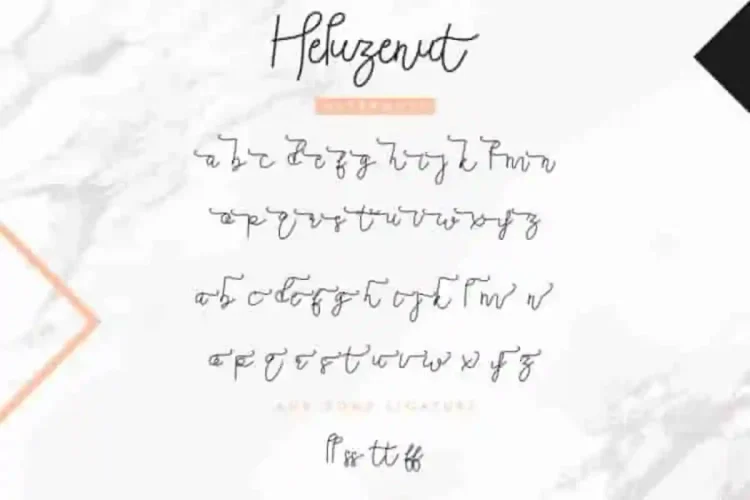 Heluzenut
ALTERNATE
a b c d e f g h i j k l m n
o p q r s t u v w x y z
a b c d e f g h i j k l m n
o p q r s t u v w x y z
AND SOME LIGATURE
ll ss tt ff